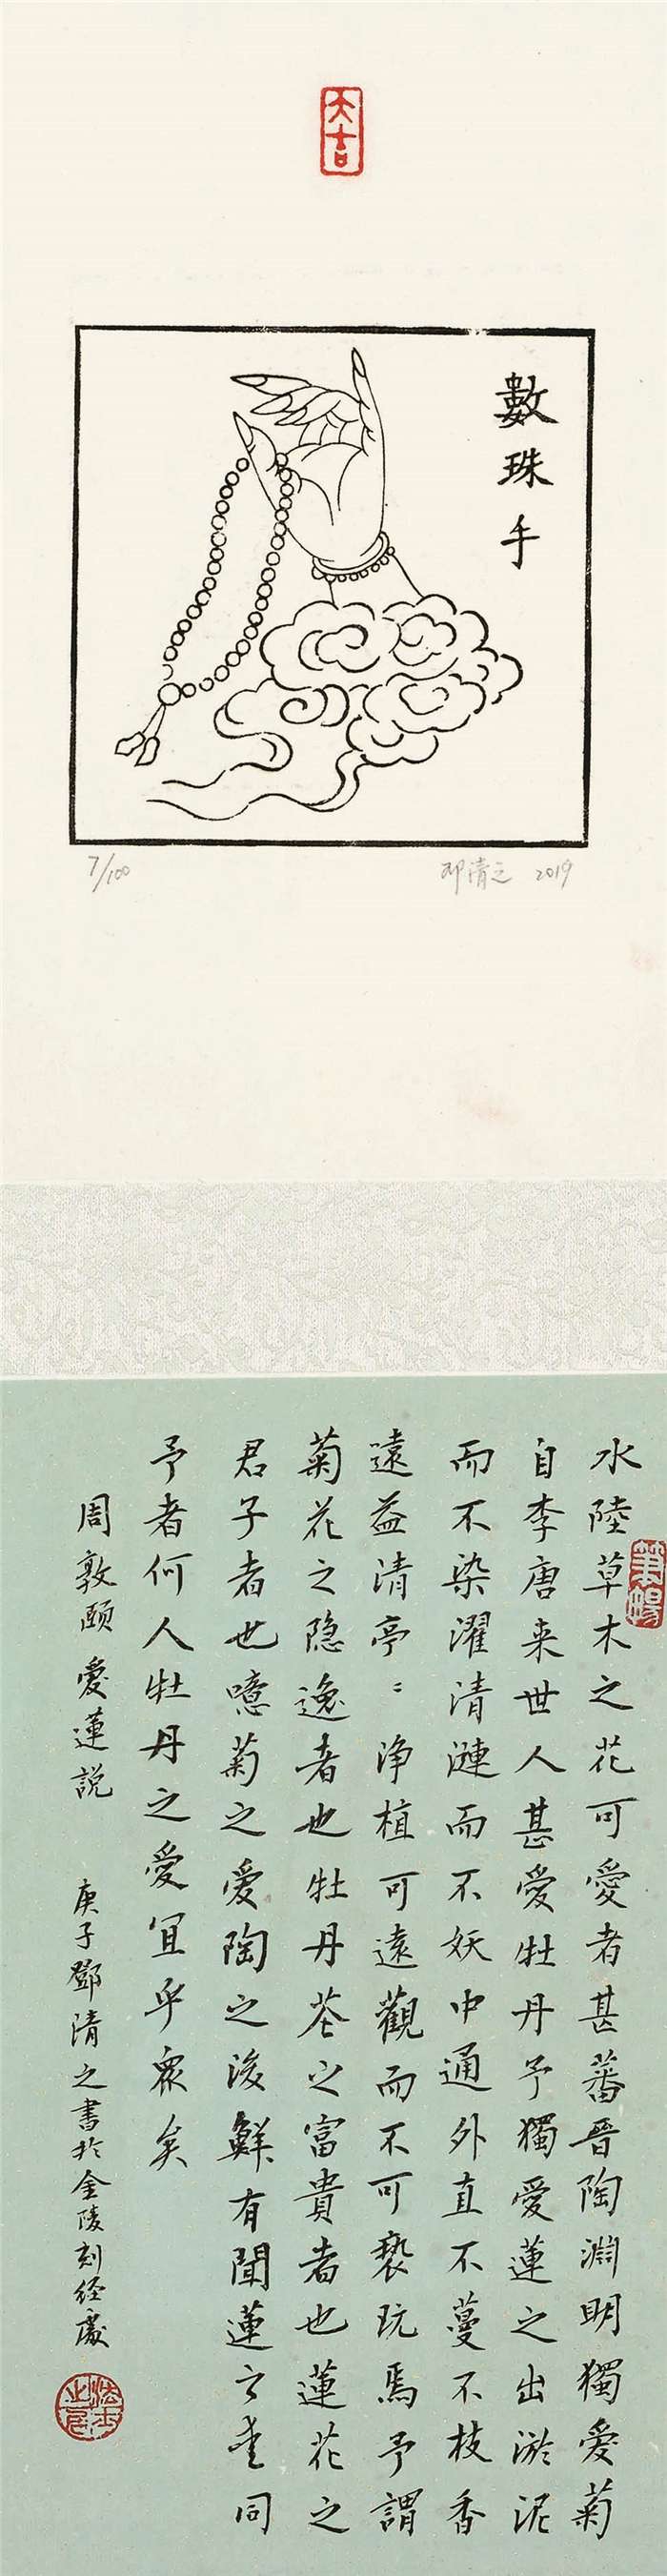 大吉
數珠手
7/100
邓清之 2019
水陸草木之花可愛者甚蕃晉陶淵明獨愛菊
自李唐来世人甚愛牡丹予獨愛蓮之出淤泥
而不染濯清漣而不妖中通外直不蔓不枝香
遠益清亭〻浄植可遠觀而不可褻玩焉予謂
菊花之隐逸者也牡丹花之富貴者也蓮花之
君子者也噫菊之愛陶之後鮮有聞蓮之愛同
予者何人牡丹之愛宜乎衆矣
周敦頤愛蓮説
庚子鄧清之書於金陵刻经處